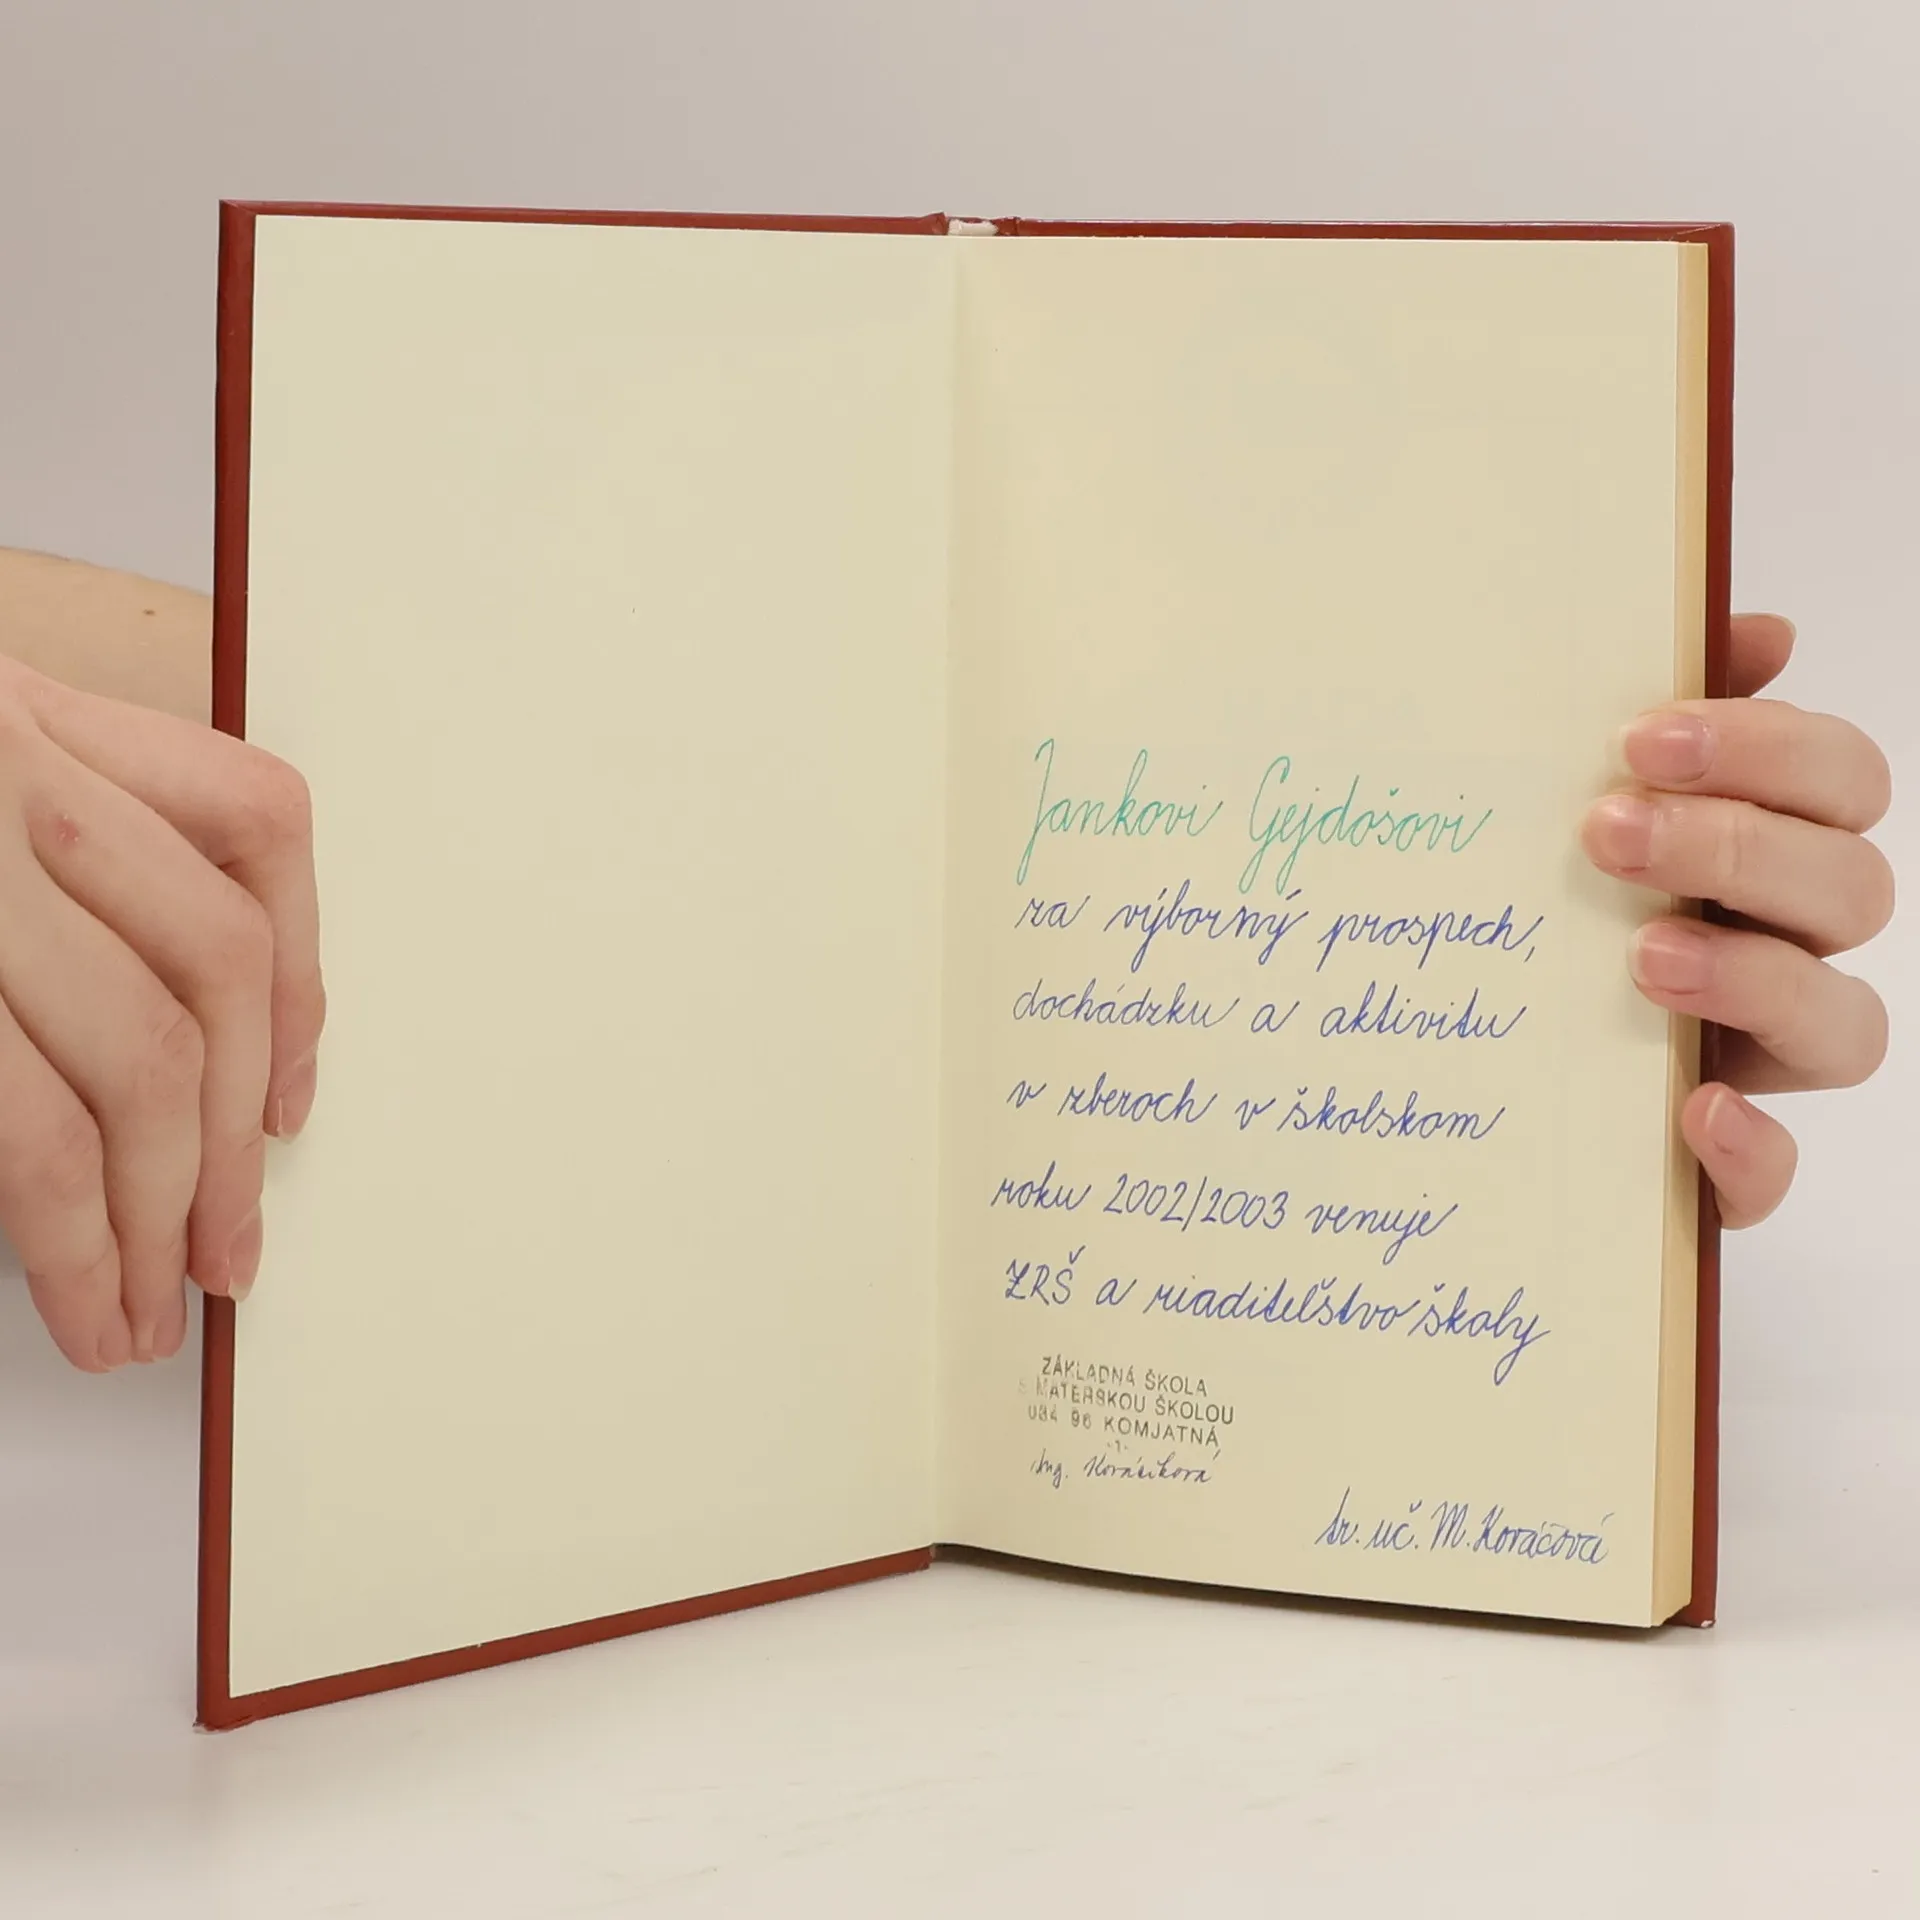 Jankovi Gejdošovi
za výborný prospech,
dochádzku a aktivitu
v zberoch v školskom
roku 2002/2003 venuje
ZRŠ a riaditeľstvo školy
ZÁKLADNÁ ŠKOLA
S MATERSKOU ŠKOLOU
034 96 KOMJATNÁ
-1-
Ing.
tr. uč. M. Kováčová